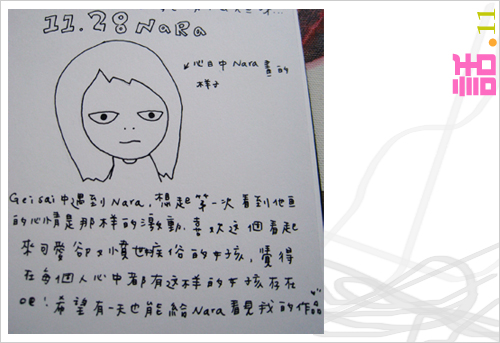 11.28 NaRa
心目中 Nara 畫的
样子
Geisai中遇到Nara，想起第一次看到他画
的心情是那样的激動．喜欢这個看起
來可愛卻又憤世疾俗的女孩，覺得
在每個人心中都有这样的女孩存在
oe！希望有一天也能給Nara看見我的作品
.11